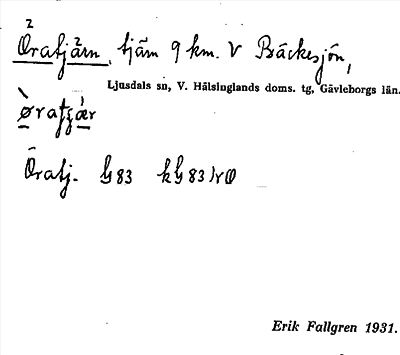 Öratjärn, tjärn 9 km. V Bäckesjön,
Ljusdals sn, V. Hälsinglands doms. tg, Gävleborgs län.
Öratj.
Erik Fallgren 1931.